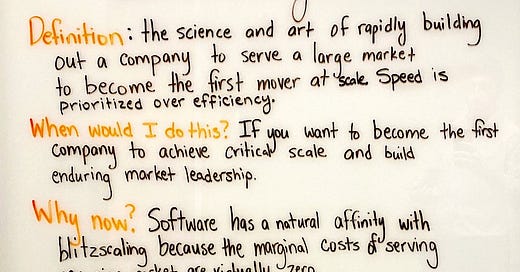 Definition: the science and art of rapidly building
out a company to serve a large market
to become the first mover at scale. Speed is
prioritized over efficiency.
When would I do this? If you want to become the first
company to achieve critical scale and build
enduring market leadership.
Why now? Software has a natural affinity with
blitzscaling because the marginal costs of serving
market are virtually zero